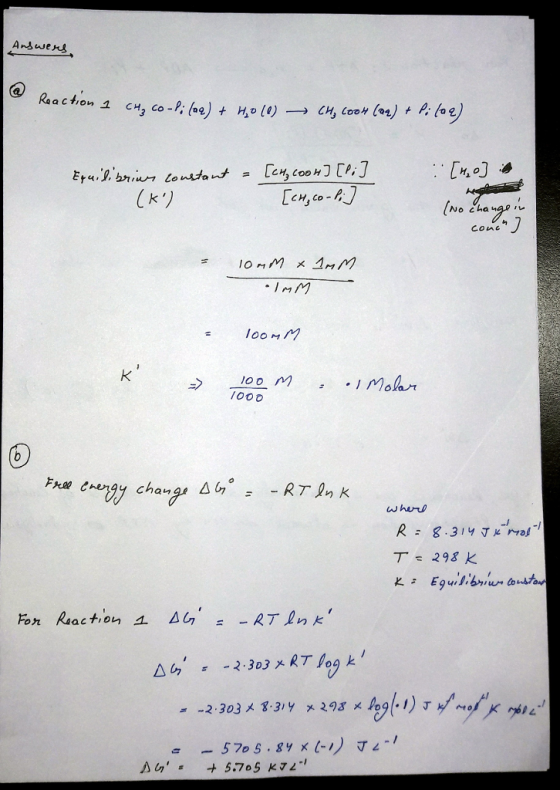 Answers
(a) Reaction 1 CH3CO-Pi(aq) + H2O(l) → CH3COOH(aq) + Pi(aq)
Equilibrium constant = [CH3COOH][Pi] / [CH3CO-Pi] ∵ [H2O]
(K') (No change in concn]
= 10mM × 1mM / .1mM
= 100mM
K' ⇒ 100/1000 M = .1 Molar
(b)
Free energy change ΔG° = -RT ln K
where
R = 8.314 J K⁻¹ mol⁻¹
T = 298 K
K = Equilibrium constan
For Reaction 1 ΔG' = -RT ln K'
ΔG' = -2.303 × RT log K'
= -2.303 × 8.314 × 298 × log(.1) J
= - 5705.84 × (-1) J L⁻¹
ΔG' = + 5.705 KJ L⁻¹